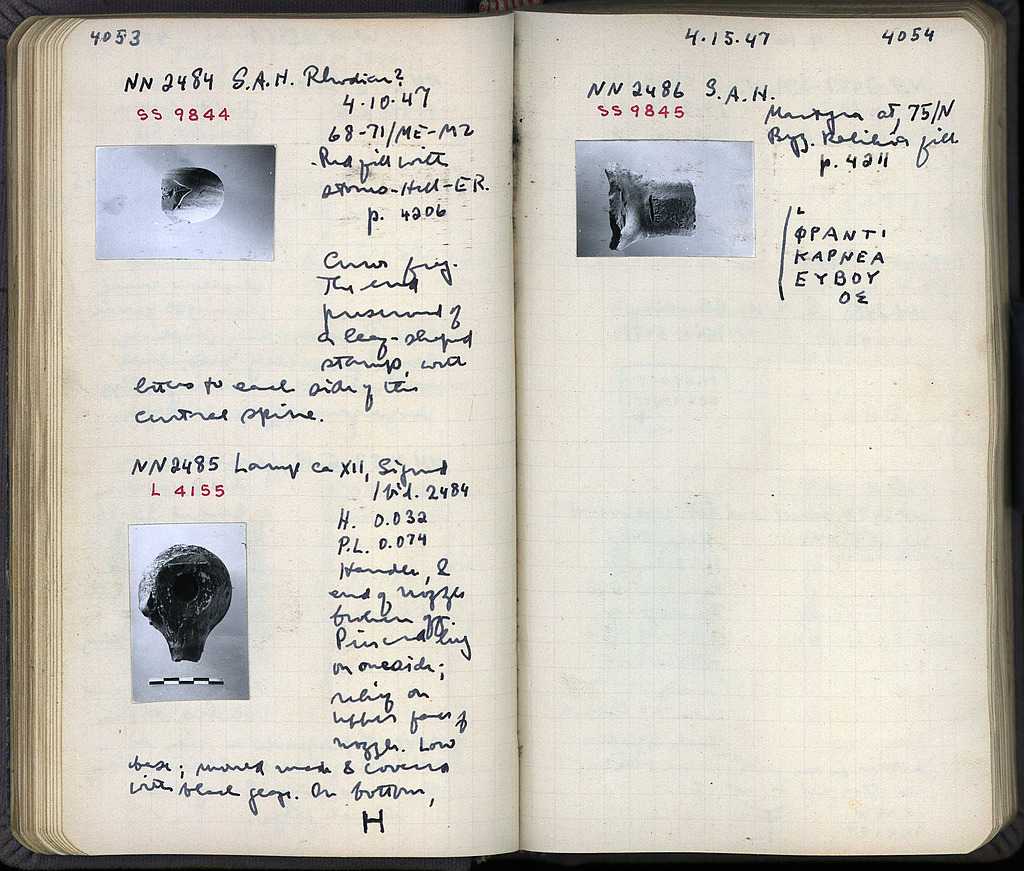 4053
NN 2484 S.A.H. Rhodian?
SS 9844
4.10.47
68-71/ME-MZ
Red fill with
stones-Hell-ER.
p. 4206
Curved frag.
The end
preserved of
a leaf-shaped
stamp, with
letters to each side of the
central spine.
NN 2485 Lamp ca XII, Signed
L 4155
Ibid. 2484
H. 0.032
P.L. 0.074
Handle, &
end of nozzle
broken off.
Pierced lug
on one side;
relief on
upper face of
nozzle. Low
base; mould made & covered
with black glaze. On bottom,
H
4.15.47
4054
NN 2486 S.A.H.
SS 9845
at, 75/N
Byz. fill
p. 4211
L
ΦΡΑΝΤΙ
ΚΑΡΝΕΑ
ΕΥΒΟΥ
ΟΣ